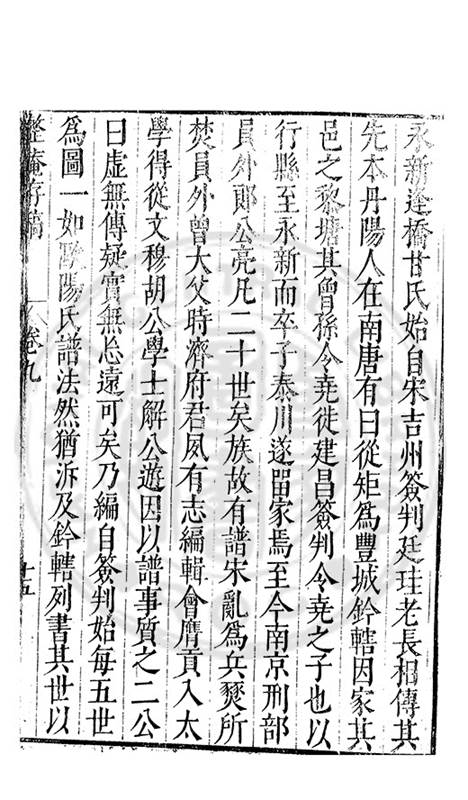 永新逢橋甘氏始自宋吉州簽判廷珪老長相傳其
先本丹陽人在南唐有曰從矩爲豐城鈐轄因家其
邑之黎塘其曾孫令堯徙建昌簽判令堯之子也以
行縣至永新而卒子泰川遂畱家焉至今南京刑部
員外郎公亮凡二十世矣族故有譜宋亂爲兵燹所
焚員外曾大父時濟府君夙有志編輯會膺貢入太
學得從文穆胡公學士解公遊因以譜事質之二公
曰虛無傳疑實無忘遠可矣乃編自簽判始每五世
爲圖一如歐陽氏譜法然猶泝及鈐轄列書其世以
整菴存稿 卷九 十五